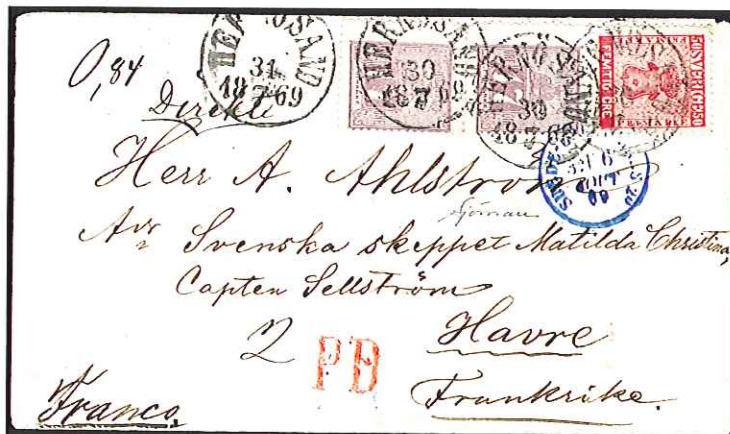 HERNÖSAND
31
18 7 69
HERNÖSAND
30
18 7
HERNÖSAND
30
18 7
50 SVERIGE 50
FEMTIO ÖRE
0,84
Direkte
Herr A. Ahlström
Adr Svenska skeppet Matilda Christina,
Capten Sellström
2
PD
Havre
Franco.
Frankrike.